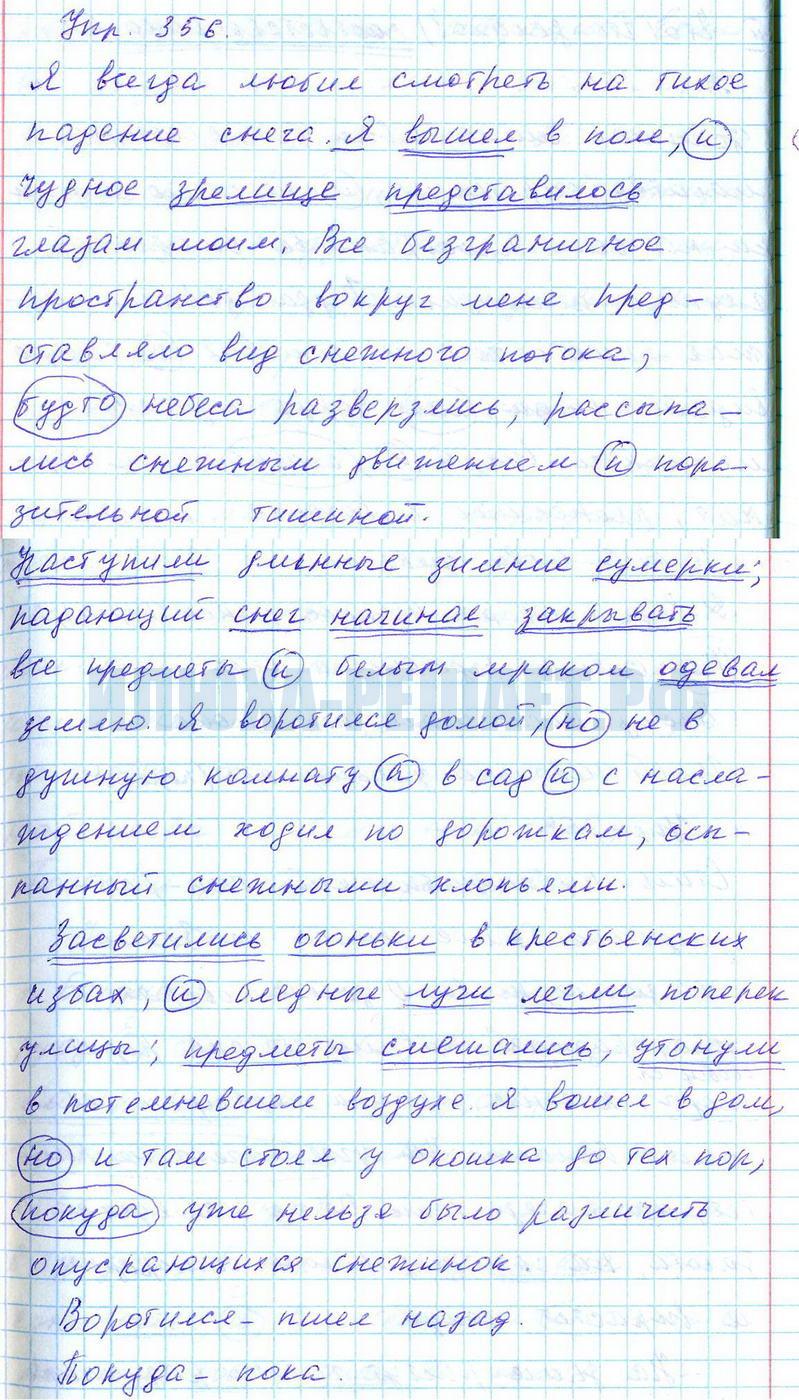 Упр. 356.
Я всегда любил смотреть на тихое
падение снега. Я вышел в поле, и
чудное зрелище представилось
глазам моим. Все безграничное
пространство вокруг мене пред-
ставляло вид снежного потока,
будто небеса разверзлись, рассыпа-
лись снежным движением и пора-
зительной тишиной.
Наступили длинные зимние сумерки;
падающий снег начинал закрывать
все предметы и белым мраком одевал
землю. Я воротился домой, но не в
душную комнату, а в сад и с насла-
ждением ходил по дорожкам, осы-
панный снежными хлопьями.
Засветились огоньки в крестьянских
избах, и бледные лучи легли поперек
улицы; предметы смешались, утонули
в потемневшем воздухе. Я вошел в дом,
но и там стоял у окошка до тех пор,
покуда уже нельзя было различить
опускающихся снежинок.
Воротился – пшел назад.
Покуда – пока.
ИЛЮХА-РЕШАЕТ.РФ